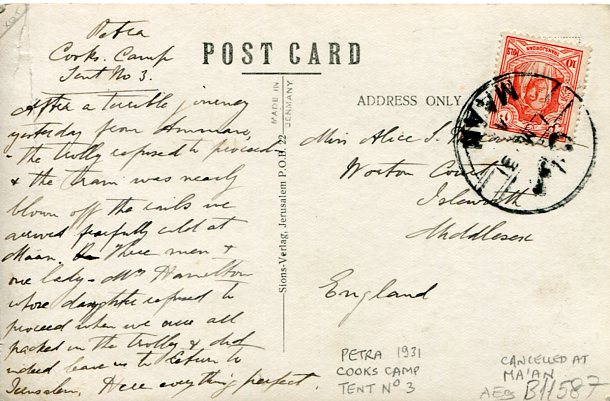 Petra
Cooks Camp
Tent No 3.
After a terrible journey
yesterday from Amman,
- the trolly refused to proceed
& the tram was nearly
blown off the rails we
arrived fearfully cold at
Maan. Three men &
one lady - Mrs Hamilton
whose daughter refused to
proceed when we were all
packed in the trolly & did
indeed leave us to return to
Jerusalem. Here everything perfect.
POST CARD
MADE IN
GERMANY
Sions-Verlag, Jerusalem P.O.H. 22
ADDRESS ONLY
Miss Alice S.
Worton Court
Isleworth
Middlesex
England
TRANSJORDAN
MILS
10
MA'AN
31
PETRA 1931
COOKS CAMP
TENT NO 3
CANCELLED AT
MA'AN
B11587